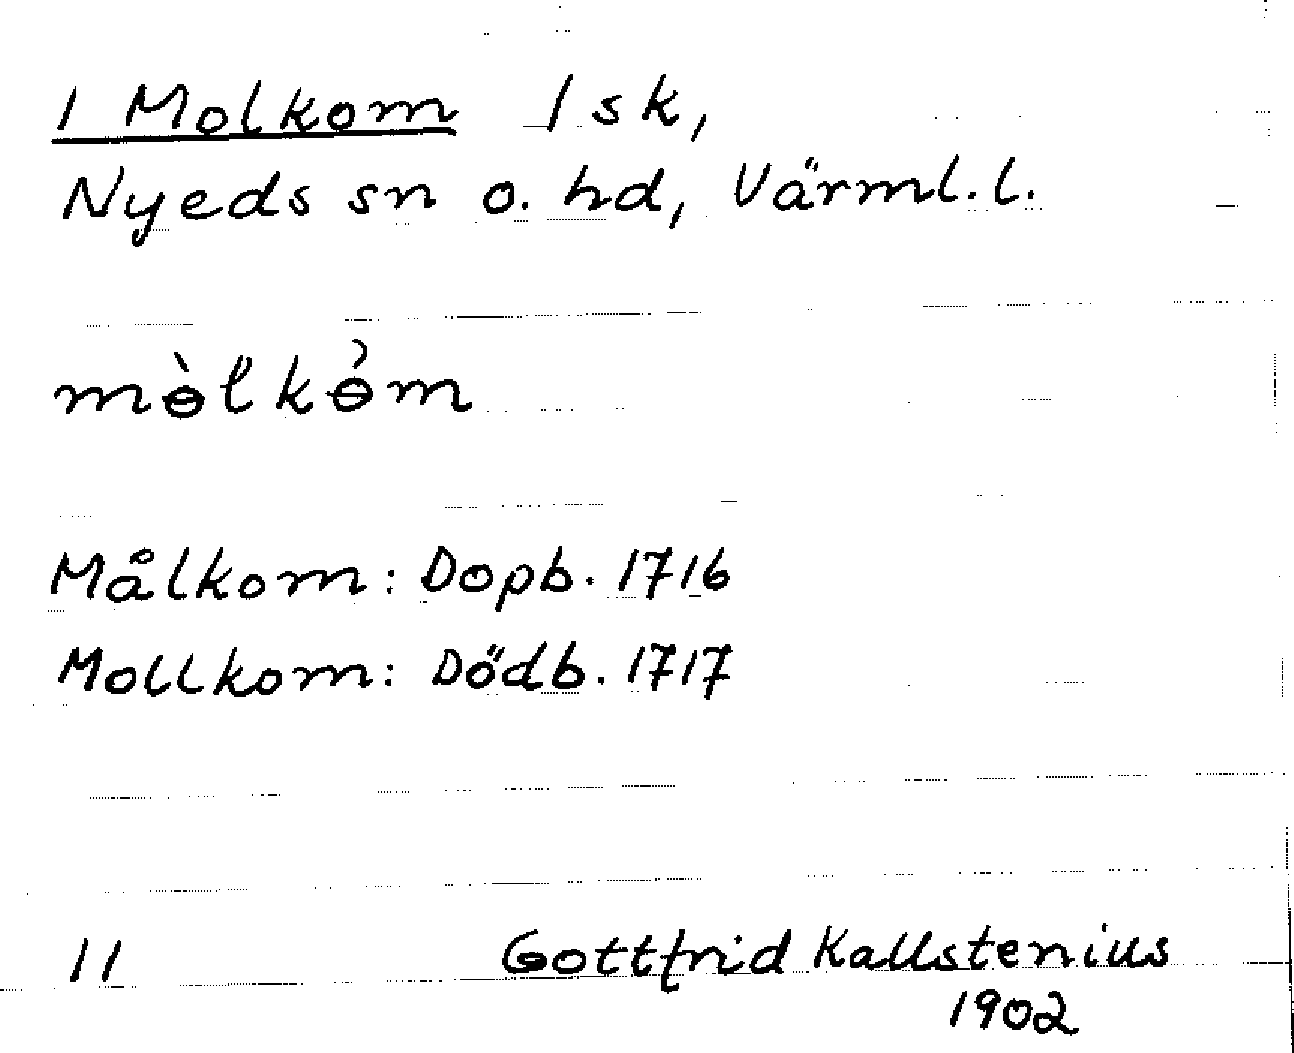 1 Molkom 1 sk,
Nyeds sn o. hd, Värml. l.
mɵ̀lkɵ̉m
Målkom: Dopb. 1716
Mollkom: Dödb. 1717
11 Gottfrid Kallstenius
1902